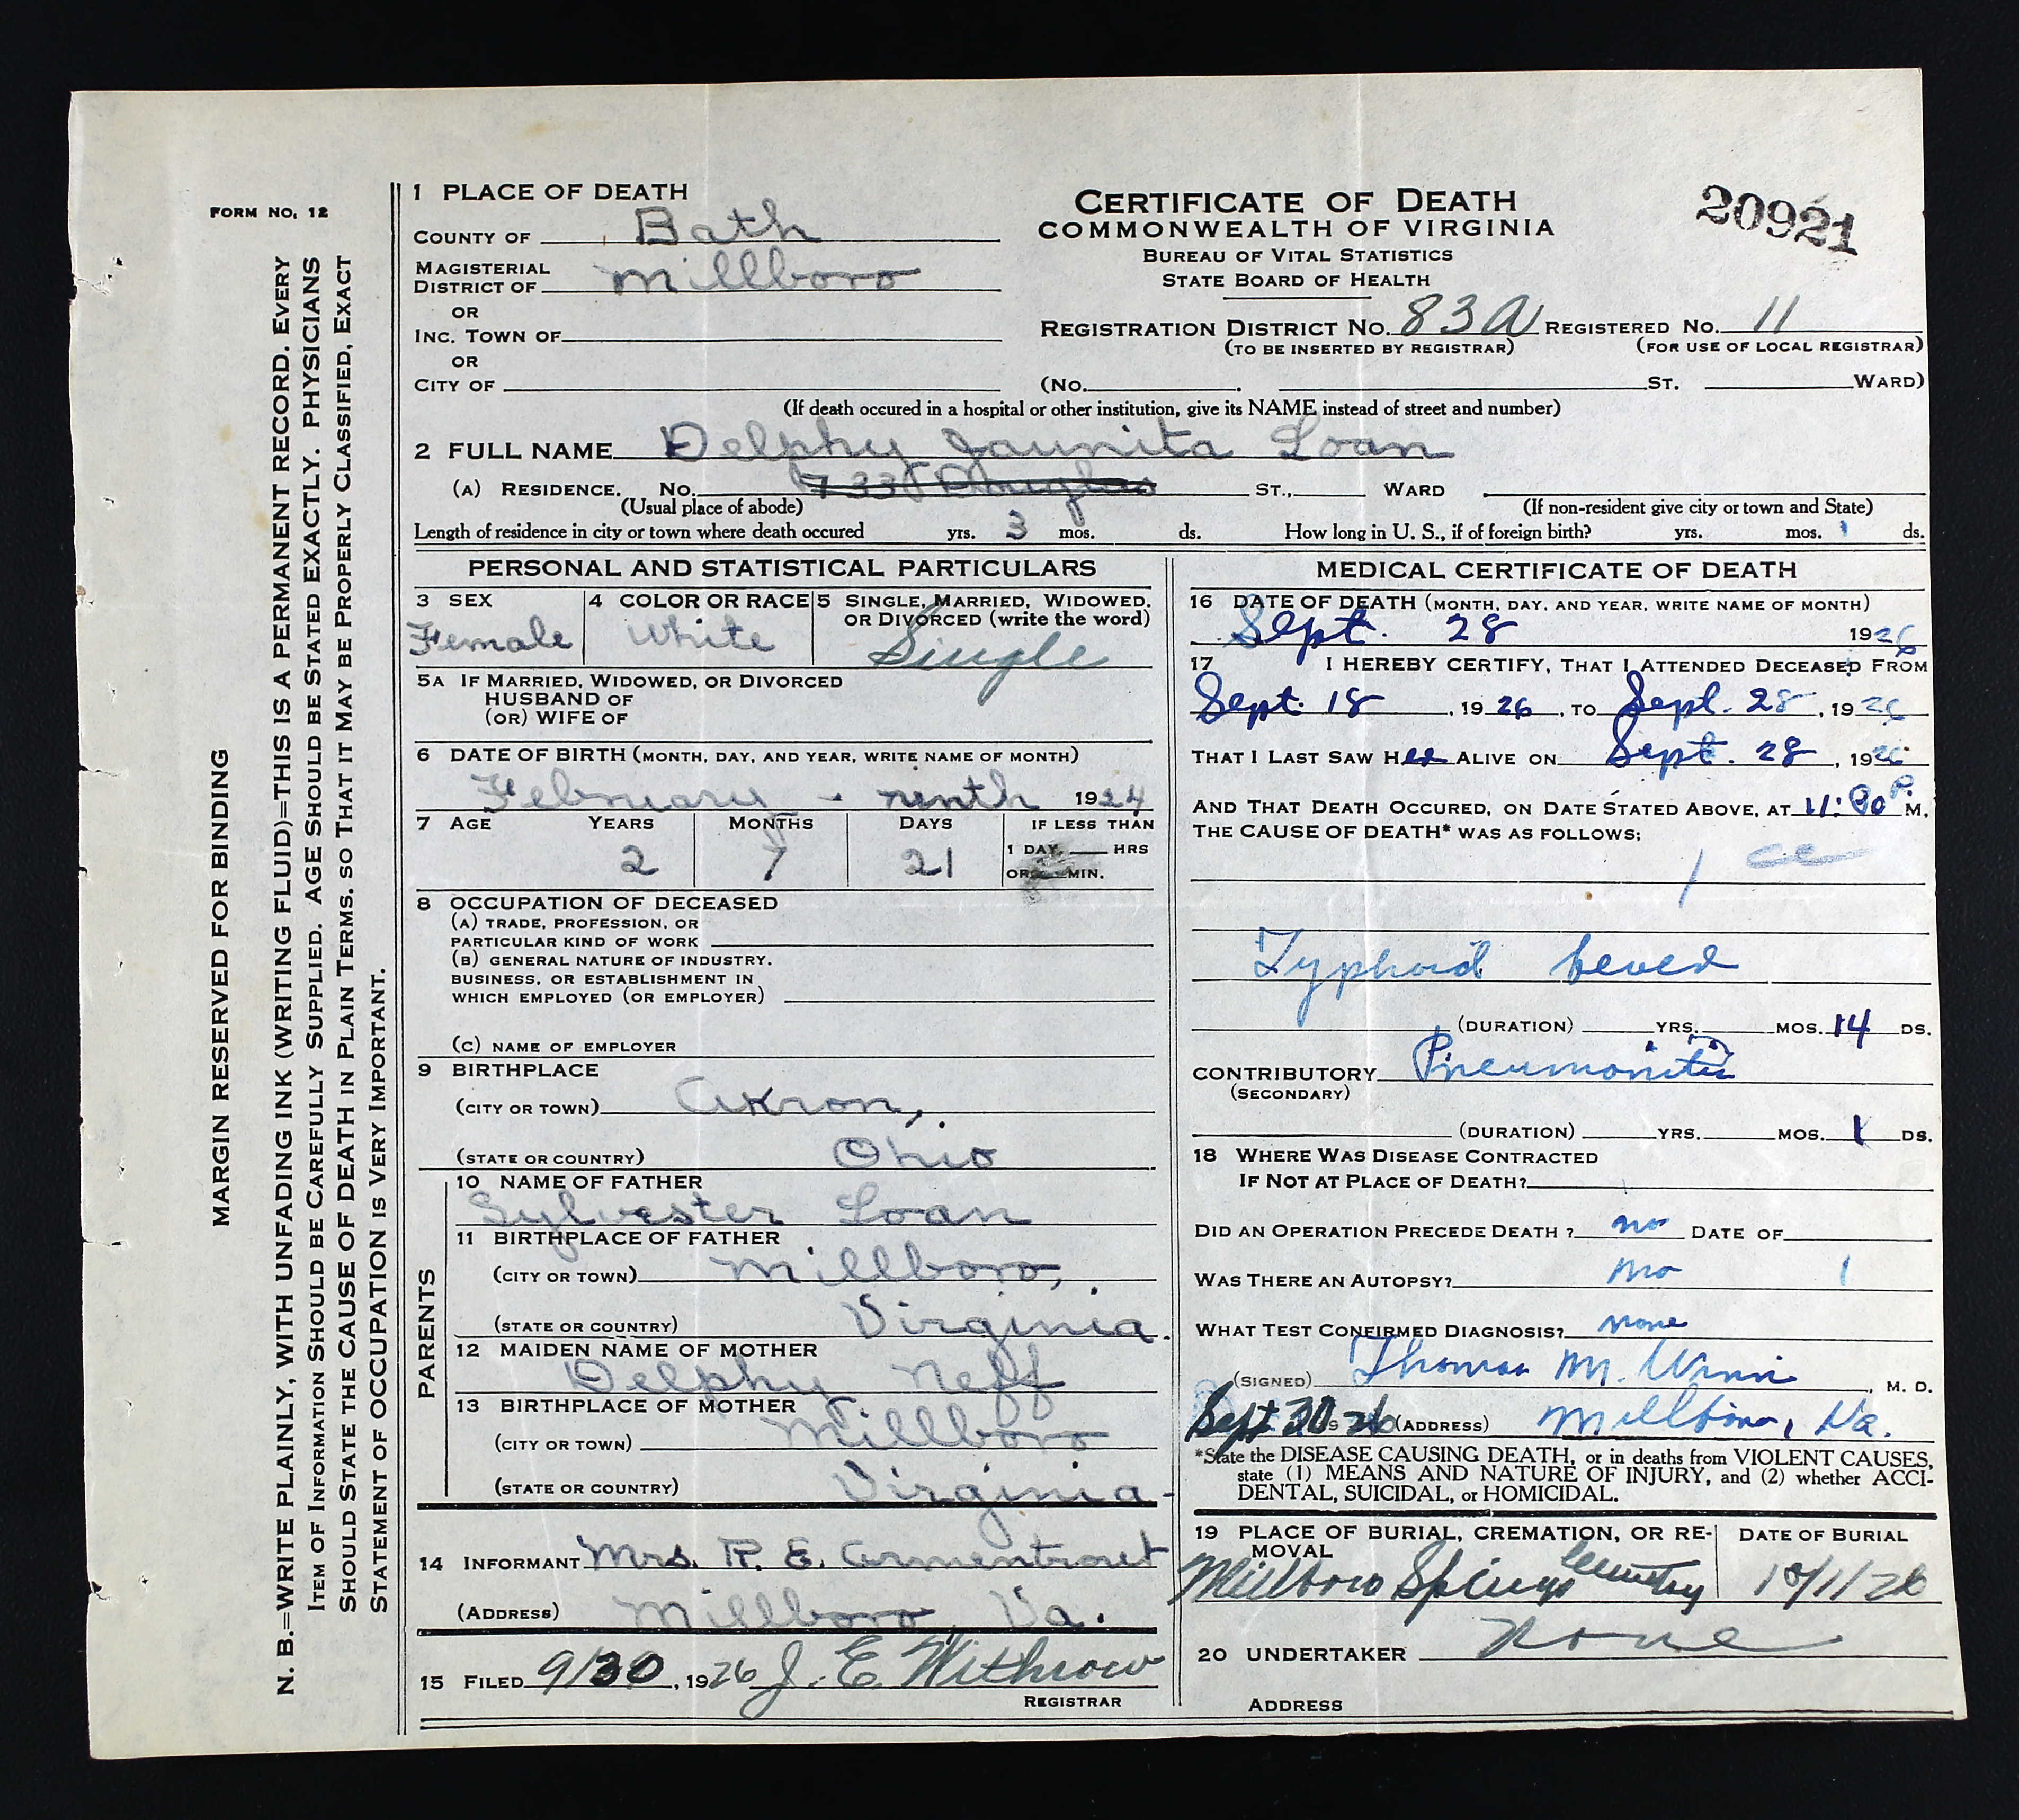 FORM NO. 12
MARGIN RESERVED FOR BINDING
N. B.=WRITE PLAINLY, WITH UNFADING INK (WRITING FLUID)=THIS IS A PERMANENT RECORD. EVERY
ITEM OF INFORMATION SHOULD BE CAREFULLY SUPPLIED. AGE SHOULD BE STATED EXACTLY. PHYSICIANS
SHOULD STATE THE CAUSE OF DEATH IN PLAIN TERMS. SO THAT IT MAY BE PROPERLY CLASSIFIED, EXACT
STATEMENT OF OCCUPATION IS VERY IMPORTANT.
CERTIFICATE OF DEATH
COMMONWEALTH OF VIRGINIA
BUREAU OF VITAL STATISTICS
STATE BOARD OF HEALTH
20921
REGISTRATION DISTRICT NO. 83A REGISTERED NO. 11
(TO BE INSERTED BY REGISTRAR) (FOR USE OF LOCAL REGISTRAR)
1 PLACE OF DEATH
COUNTY OF Bath
MAGISTERIAL
DISTRICT OF Millboro
OR
INC. TOWN OF
OR
CITY OF (NO. ST. WARD)
(If death occured in a hospital or other institution, give its NAME instead of street and number)
2 FULL NAME Delphy Jaunita Loan
(A) RESIDENCE. NO. ST., WARD
(Usual place of abode) (If non-resident give city or town and State)
Length of residence in city or town where death occured yrs. 3 mos. ds. How long in U. S., if of foreign birth? yrs. mos. ds.
PERSONAL AND STATISTICAL PARTICULARS
3 SEX 4 COLOR OR RACE 5 SINGLE, MARRIED, WIDOWED,
OR DIVORCED (write the word)
Female White Single
5A IF MARRIED, WIDOWED, OR DIVORCED
HUSBAND OF
(OR) WIFE OF
6 DATE OF BIRTH (MONTH, DAY, AND YEAR, WRITE NAME OF MONTH)
February - ninth 1924
7 AGE YEARS MONTHS DAYS IF LESS THAN
1 DAY, HRS
2 7 21
OR MIN.
8 OCCUPATION OF DECEASED
(A) TRADE, PROFESSION, OR
PARTICULAR KIND OF WORK
(B) GENERAL NATURE OF INDUSTRY.
BUSINESS, OR ESTABLISHMENT IN
WHICH EMPLOYED (OR EMPLOYER)
(C) NAME OF EMPLOYER
9 BIRTHPLACE
(CITY OR TOWN) Akron,
(STATE OR COUNTRY) Ohio
PARENTS
10 NAME OF FATHER
Sylvester Loan
11 BIRTHPLACE OF FATHER
(CITY OR TOWN) Millboro,
(STATE OR COUNTRY) Virginia.
12 MAIDEN NAME OF MOTHER
Delphy Neff
13 BIRTHPLACE OF MOTHER
(CITY OR TOWN) Millboro
(STATE OR COUNTRY) Virginia-
14 INFORMANT Mrs. R. E. Armentrout
(ADDRESS) Millboro Va.
15 FILED 9/30, 1926 J. E. Withrow
REGISTRAR
MEDICAL CERTIFICATE OF DEATH
16 DATE OF DEATH (MONTH, DAY, AND YEAR, WRITE NAME OF MONTH)
Sept. 28 1926
17 I HEREBY CERTIFY, THAT I ATTENDED DECEASED FROM
Sept. 18, 1926, TO Sept. 28, 1926
THAT I LAST SAW HER ALIVE ON Sept. 28, 1926
AND THAT DEATH OCCURED, ON DATE STATED ABOVE, AT P. M.
THE CAUSE OF DEATH* WAS AS FOLLOWS:
Typhoid fever
(DURATION) YRS. MOS. 14 DS.
CONTRIBUTORY Pneumonitis
(SECONDARY)
(DURATION) YRS. MOS. 1 DS.
18 WHERE WAS DISEASE CONTRACTED
IF NOT AT PLACE OF DEATH?
DID AN OPERATION PRECEDE DEATH? no DATE OF
WAS THERE AN AUTOPSY? no
WHAT TEST CONFIRMED DIAGNOSIS? none
(SIGNED) Thomas M. Winn, M. D.
Sept 30 1926 (ADDRESS) Millboro, Va.
*State the DISEASE CAUSING DEATH, or in deaths from VIOLENT CAUSES,
state (1) MEANS AND NATURE OF INJURY, and (2) whether ACCI-
DENTAL, SUICIDAL, or HOMICIDAL.
19 PLACE OF BURIAL, CREMATION, OR RE- DATE OF BURIAL
MOVAL
Millboro Springs Cemetery 10/1/26
20 UNDERTAKER None
ADDRESS